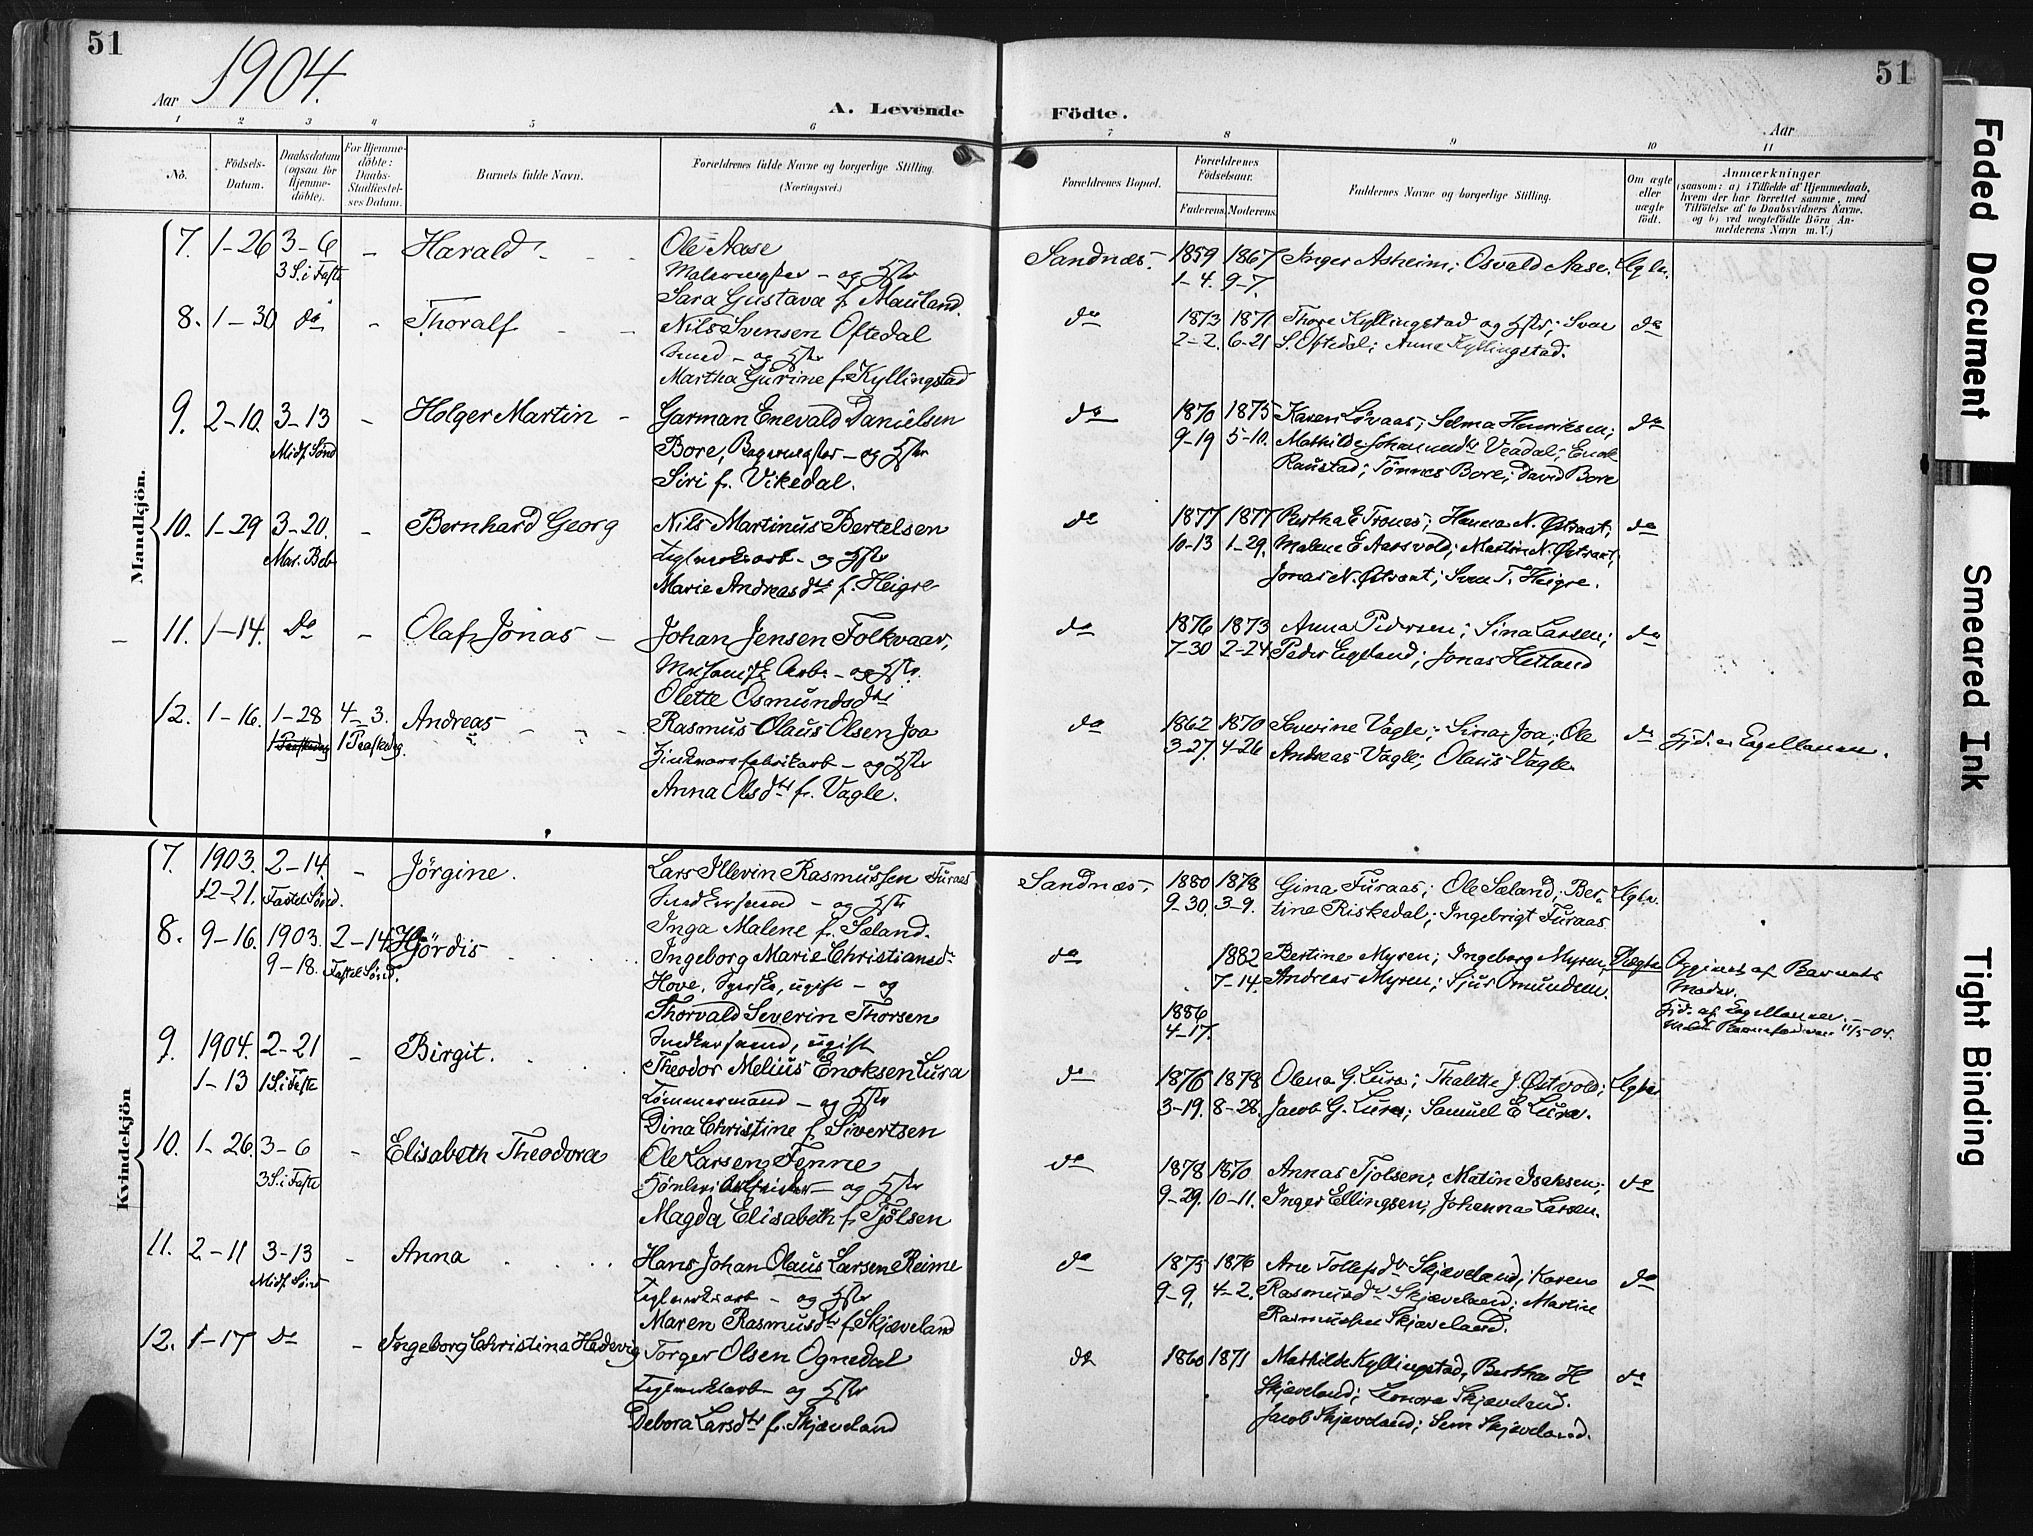 51
Aar 1904.
A. Levende
Födte.
51
Aar
1 2 3 4 5 6 7 8 9 10 11
No.
Födsels-
Datum.
Daabsdatum
(ogsaa for
Hjemme-
döbte).
For Hjemme-
döbte:
Daabs-
Stadfæstel-
ses Datum.
Barnets fulde Navn.
Forældrenes fulde Navne og borgerlige Stilling.
(Næringsvei.)
Forældrenes Bopæl.
Forældrenes
Födselsaar.
Faderens. Moderens.
Faddernes Navne og borgerlige Stilling.
Om ægte
eller
uægte
födt.
Anmærkninger
(saasom: a) i Tilfælde af Hjemmedaab,
hvem der har forrettet samme, med
Tilföielse af to Daabsvidners Navne,
og b) ved uægtefödte Börn An-
melderens Navn m. V.)
Mandkjön.
7. 1-26 3-6 - Harald - - Ole Aase Sandnæs. 1859 1867 Inger Asheim; Osvald Aase.
3 S. i Faste - og Hstr 1-4. 9-7.
Sara Gustava f. Mauland.
8. 1-30 do - Thoralf - - Nils Svensen Oftedal do 1873 1871 Thore Kyllingstad og Hstr; do
Smed - og Hstr 2-2. 6-21 S. Oftedal; Anne Kyllingstad.
Martha Gurine f. Kyllingstad
9. 2-10. 3-13 - Holger Martin - Garman Enevald Danielsen do 1870 1875 Karen Lövaas; Selma Henriksen; do
Midf. Sönd Bore, Bagermester - og Hstr 9-19 5-10. Mathilde Veadal; Enok
Siri f. Vikedal. Raustad; Tönnes Bore; David Bore
10. 1-29 3-20. - Bernhard Georg Nils Martinus Bertelsen do 1877 1877 Bertha E Trones; Hanna N. Østraat; do
Mar. Beb - og Hstr 10-13 1-29. Malene E Aarsvold; Martin N. Østraat;
Marie Andreasdtr f. Heigre Jonas N. Østraat; Sven T. Heigre.
11. 1-14. do - Olaf Jonas - Johan Jensen Folkvaar, do 1876 1873 Anna Pedersen; Sina Larsen; do
Arb. - og Hstr. 7-30 2-24 Peder Egeland; Jonas Hetland
Olette Osmundsdtr
12. 1-16. 1-28 4-3. Andreas - - Rasmus Olaus Olsen Joa do 1862 1870 Severine Vagle; Sina Joa; Ole do
1 Paaskedag 1 Paaskedag. - og Hstr 3-27. 4-26 Andreas Vagle; Olaus Vagle.
Anna Olsdtr f. Vagle.
Kvindekjön
7. 1903. 2-14. - Jörgine. Lars Illevin Rasmussen Furaas Sandnæs. 1880 1878 Gina Furaas; Ole Sæland; Ber-
12-21. Fastel. Sönd. - og Hstr 9-30. 3-9. tine Riskedal; Ingebrigt Furaas.
Inga Malene f. Sæland.
8. 9-16. 1903. 2-14 Hjördis Ingeborg Marie Christiansdtr do 1882 Bertine Myren; Ingeborg Myren; Uægte Opgivet af Barnets
9-18. Fastel. Sönd. Hove, Syerske, ugift - og 7-14. Andreas Myren; Sjur Omundsen. Moder.
Thorvald Severin Thorsen 1886
ugift 4-17. 11/5-04.
9. 1904. 2-21 - Birgit. Theodor Melius Enoksen Lura do 1876 1878 Olena G. Lura; Thalette J. Østvold;
1-13 1 S. i Faste Tömmermand - og Hstr 3-19. 8-28. Jacob G. Lura; Samuel E Lura.
Dina Christine f. Sivertsen
10. 1-26. 3-6 - Elisabeth Theodora Ole Larsen Fenne do 1878 1870 Annas Tjolsen; Matin Isaksen; do
3 S. i Faste - og Hstr 9-29. 10-11. Inger Ellingsen; Johanna Larsen.
Magda Elisabeth f. Tjölsen
11. 2-11 3-13 - Anna Hans Johan Olaus Larsen Reime do 1875 1876 Ane Tollefsdtr Skjæveland; Karen do
Midf. Sönd - og Hstr 9-9. 4-2. Rasmusdtr Skjæveland; Martin
Maren Rasmusdtr f. Skjæveland Rasmussen Skjæveland.
12. 1-17 do - Ingeborg Christina Hedevig Torger Olsen Ognedal do 1860 1871 Mathilde Kyllingstad, Bertha H do
- og Hstr Skjæveland; Lenora Skjæveland.
Debora Larsdtr f. Skjæveland Jacob Skjæveland; Sem Skjæveland.
Faded Document
Smeared Ink
Tight Binding